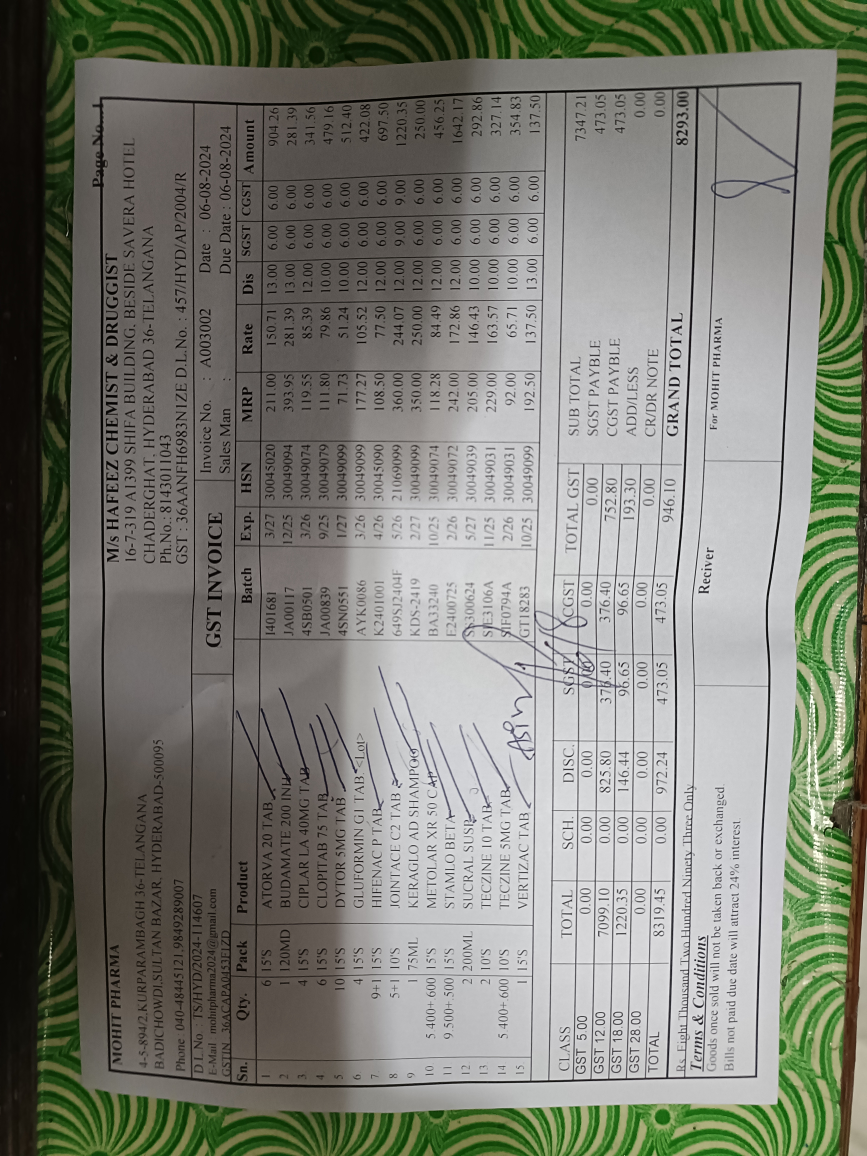 Page No...1
MOHIT PHARMA
4-5-894/2,KURPARAMBAGH 36-TELANGANA
BADICHOWDI,SULTAN BAZAR, HYDERABAD-500095
Phone : 040-48445121,9849289007
D.L.No. : TS/HYD/2024-114607
E-Mail : mohitpharma2024@gmail.com
GSTIN : 36ACAPA0453E1ZD
M/s HAFEEZ CHEMIST & DRUGGIST
16-7-319 A1399 SHIFA BUILDING, BESIDE SAVERA HOTEL
CHADERGHAT, HYDERABAD 36-TELANGANA
Ph.No.: 8143011043
GST : 36AANFH6983N1ZE D.L.No. : 457/HYD/AP/2004/R
GST INVOICE
Invoice No. : A003002 Date : 06-08-2024
Sales Man : Due Date : 06-08-2024
Sn. Qty. Pack Product Batch Exp. HSN MRP Rate Dis SGST CGST Amount
1 6 15'S ATORVA 20 TAB I401681 3/27 30045020 211.00 150.71 13.00 6.00 6.00 904.26
2 1 120MD BUDAMATE 200 INH JA00117 12/25 30049094 393.95 281.39 13.00 6.00 6.00 281.39
3 4 15'S CIPLAR LA 40MG TAB 4SB0501 3/26 30049074 119.55 85.39 12.00 6.00 6.00 341.56
4 6 15'S CLOPITAB 75 TAB JA00839 9/25 30049079 111.80 79.86 10.00 6.00 6.00 479.16
5 10 15'S DYTOR 5MG TAB 4SN0551 1/27 30049099 71.73 51.24 10.00 6.00 6.00 512.40
6 4 15'S GLUFORMIN G1 TAB <Lot> AYK0086 3/26 30049099 177.27 105.52 12.00 6.00 6.00 422.08
7 9+1 15'S HIFENAC P TAB K2401001 4/26 30045090 108.50 77.50 12.00 6.00 6.00 697.50
8 5+1 10'S JOINTACE C2 TAB 649SJ2404F 5/26 21069099 360.00 244.07 12.00 9.00 9.00 1220.35
9 1 75ML KERAGLO AD SHAMPOO KDS-2419 2/27 30049099 350.00 250.00 12.00 6.00 6.00 250.00
10 5.400+.600 15'S METOLAR XR 50 CAP BA33240 10/25 30049074 118.28 84.49 12.00 6.00 6.00 456.25
11 9.500+.500 15'S STAMLO BETA E2400725 2/26 30049072 242.00 172.86 12.00 6.00 6.00 1642.17
12 2 200ML SUCRAL SUSP 5/27 30049039 205.00 146.43 10.00 6.00 6.00 292.86
13 2 10'S TECZINE 10 TAB SIE3106A 11/25 30049031 229.00 163.57 10.00 6.00 6.00 327.14
14 5.400+.600 10'S TECZINE 5MG TAB SIF0794A 2/26 30049031 92.00 65.71 10.00 6.00 6.00 354.83
15 1 15'S VERTIZAC TAB GT18283 10/25 30049099 192.50 137.50 13.00 6.00 6.00 137.50
CLASS TOTAL SCH. DISC. SGST CGST TOTAL GST
GST 5.00 0.00 0.00 0.00 0.00 0.00 0.00
GST 12.00 7099.10 0.00 825.80 376.40 376.40 752.80
GST 18.00 1220.35 0.00 146.44 96.65 96.65 193.30
GST 28.00 0.00 0.00 0.00 0.00 0.00 0.00
TOTAL 8319.45 0.00 972.24 473.05 473.05 946.10
SUB TOTAL 7347.21
SGST PAYBLE 473.05
CGST PAYBLE 473.05
ADD/LESS 0.00
CR/DR NOTE 0.00
GRAND TOTAL 8293.00
Rs. Eight Thousand Two Hundred Ninety Three Only
Terms & Conditions
Goods once sold will not be taken back or exchanged
Bills not paid due date will attract 24% interest.
Reciver
For MOHIT PHARMA